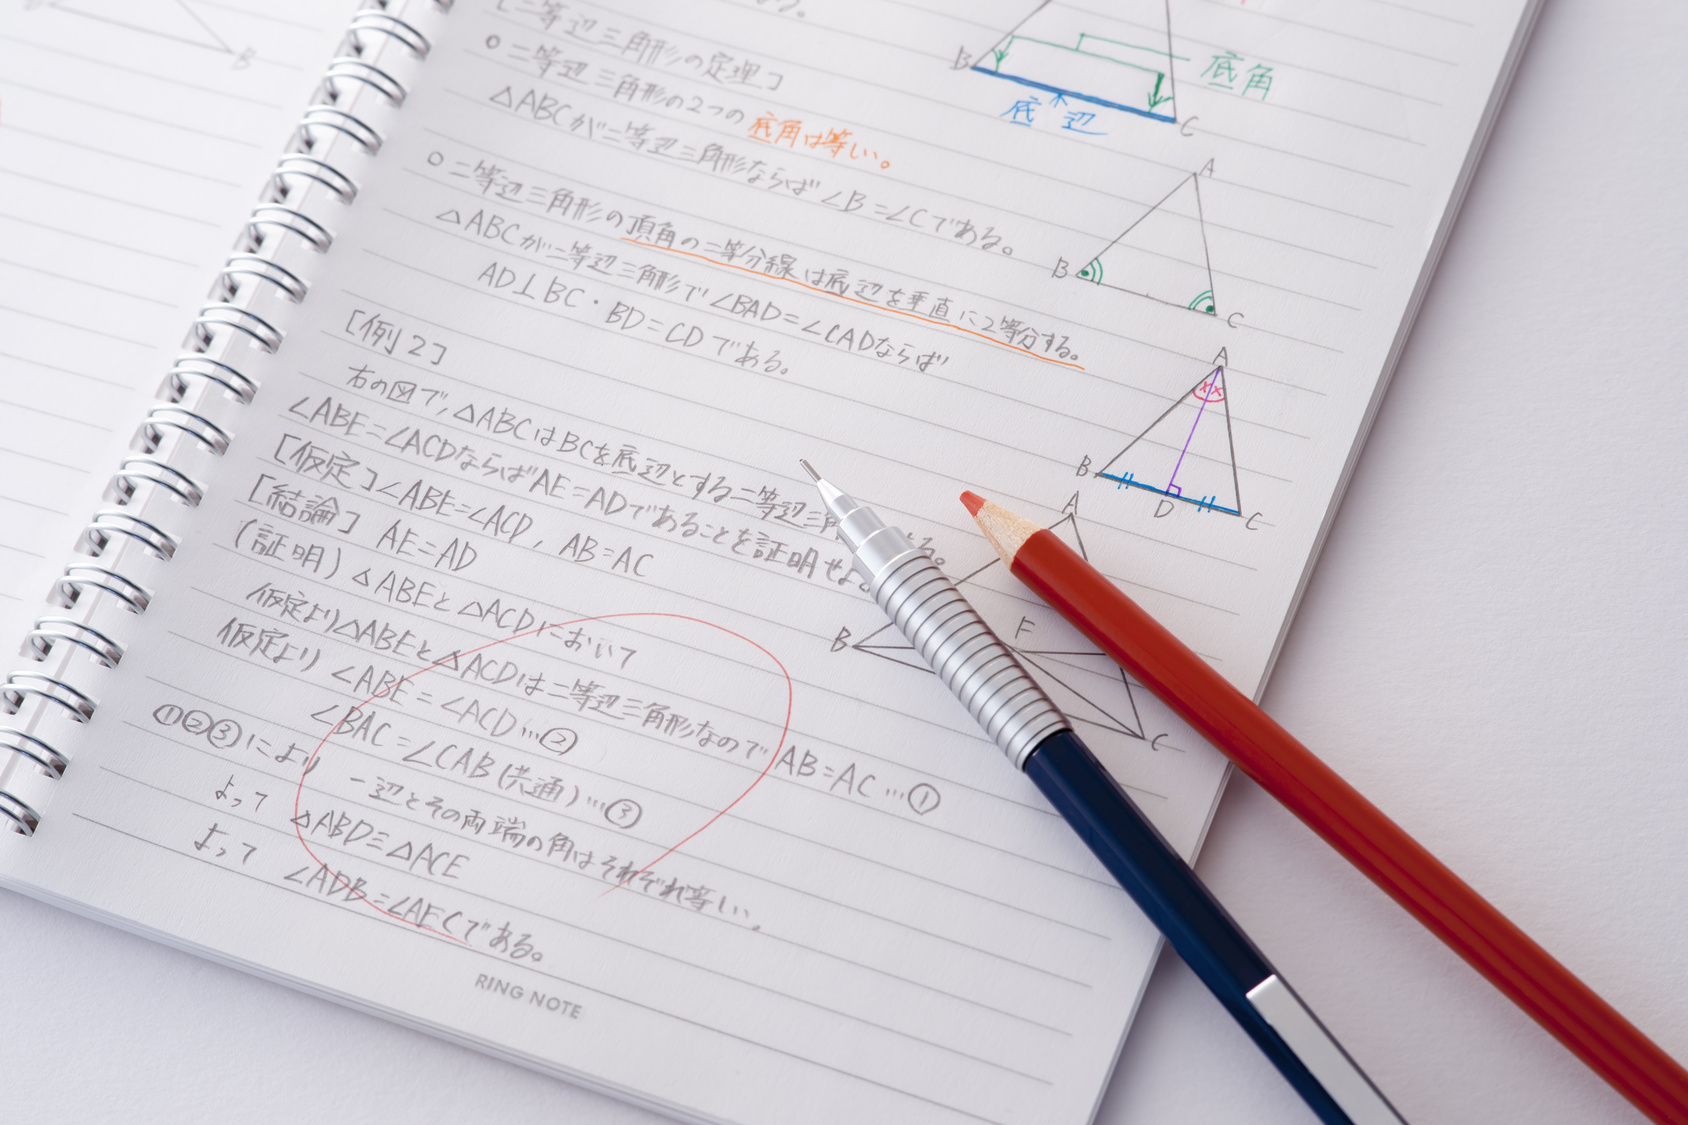 る。
[二等辺三角形の定理]
○二等辺三角形の2つの底角は等しい。
△ABCが二等辺三角形ならば∠B=∠Cである。
○二等辺三角形の頂角の二等分線は底辺を垂直に2等分する。
△ABCが二等辺三角形で∠BAD=∠CADならば
AD⊥BC・BD=CDである。
[例2]
右の図で,△ABCはBCを底辺とする二等辺三角 る。
∠ABE=∠ACDならばAE=ADであることを証明せよ。
[仮定]∠ABE=∠ACD, AB=AC
[結論] AE=AD
(証明)△ABEと△ACDにおいて
仮定より△ABEと△ACDは二等辺三角形なのでAB=AC…①
仮定より ∠ABE=∠ACD…②
∠BAC=∠CAB(共通)…③
①②③により 一辺とその両端の角はそれぞれ等しい。
よって △ABD≡△ACE
よって ∠ADB=∠AECである。
RING NOTE
B
B
C
底角
底辺
A
B
C
A
××
B
D
C
A
B
F
C